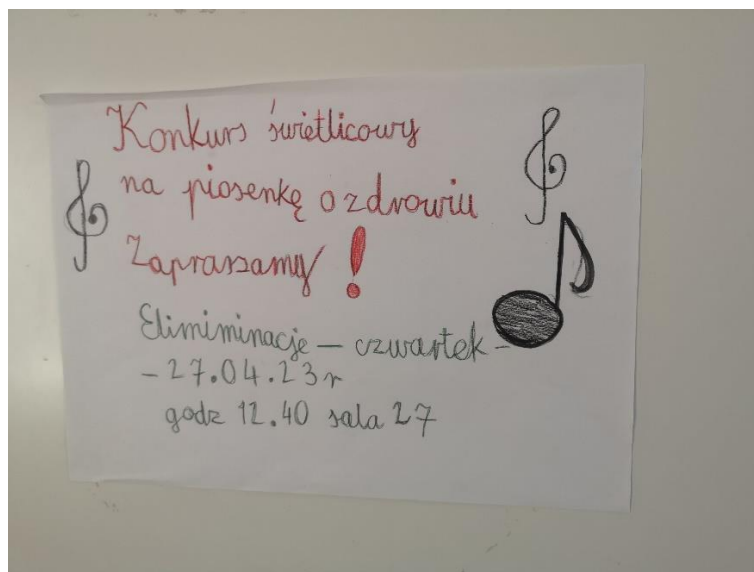 Konkurs świetlicowy
na piosenkę o zdrowiu
Zapraszamy!
Elimiminacje – czwartek –
– 27.04.23r
godz 12.40 sala 27